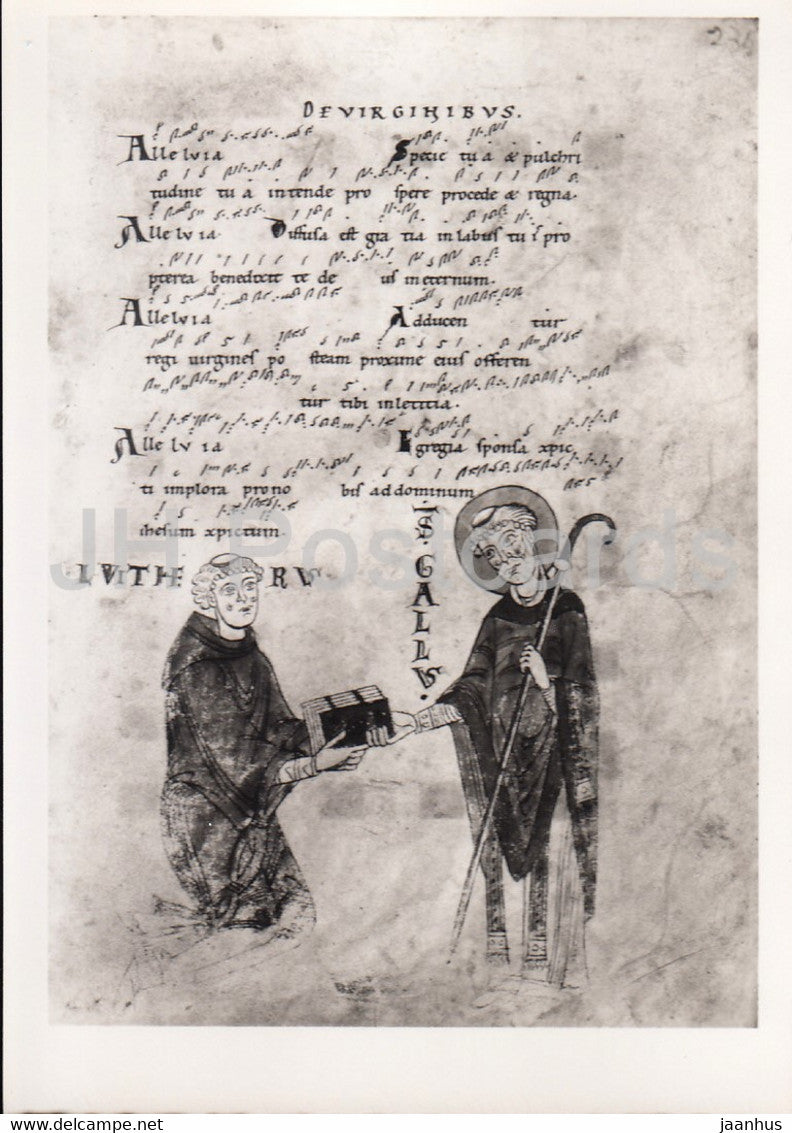 234
DE VIRGINIBVS.
Allelvia Specie tu a & pulchri
tudine tu a intende pro spere procede & regna.
Allelv ia Diffusa est gra tia in labiis tu is pro
pterea benedixit te de us in eternum.
Allelvia Adducen tur
regi uirgines po steam proxime eius offeren
tur tibi inleticia.
Allelv ia Egregia sponsa xpic
ti implora prono bis ad dominum
ihesum xpictum
LVITHE RVS
S. GALLVS.
JH Postcards
www.delcampe.net
jaanhus